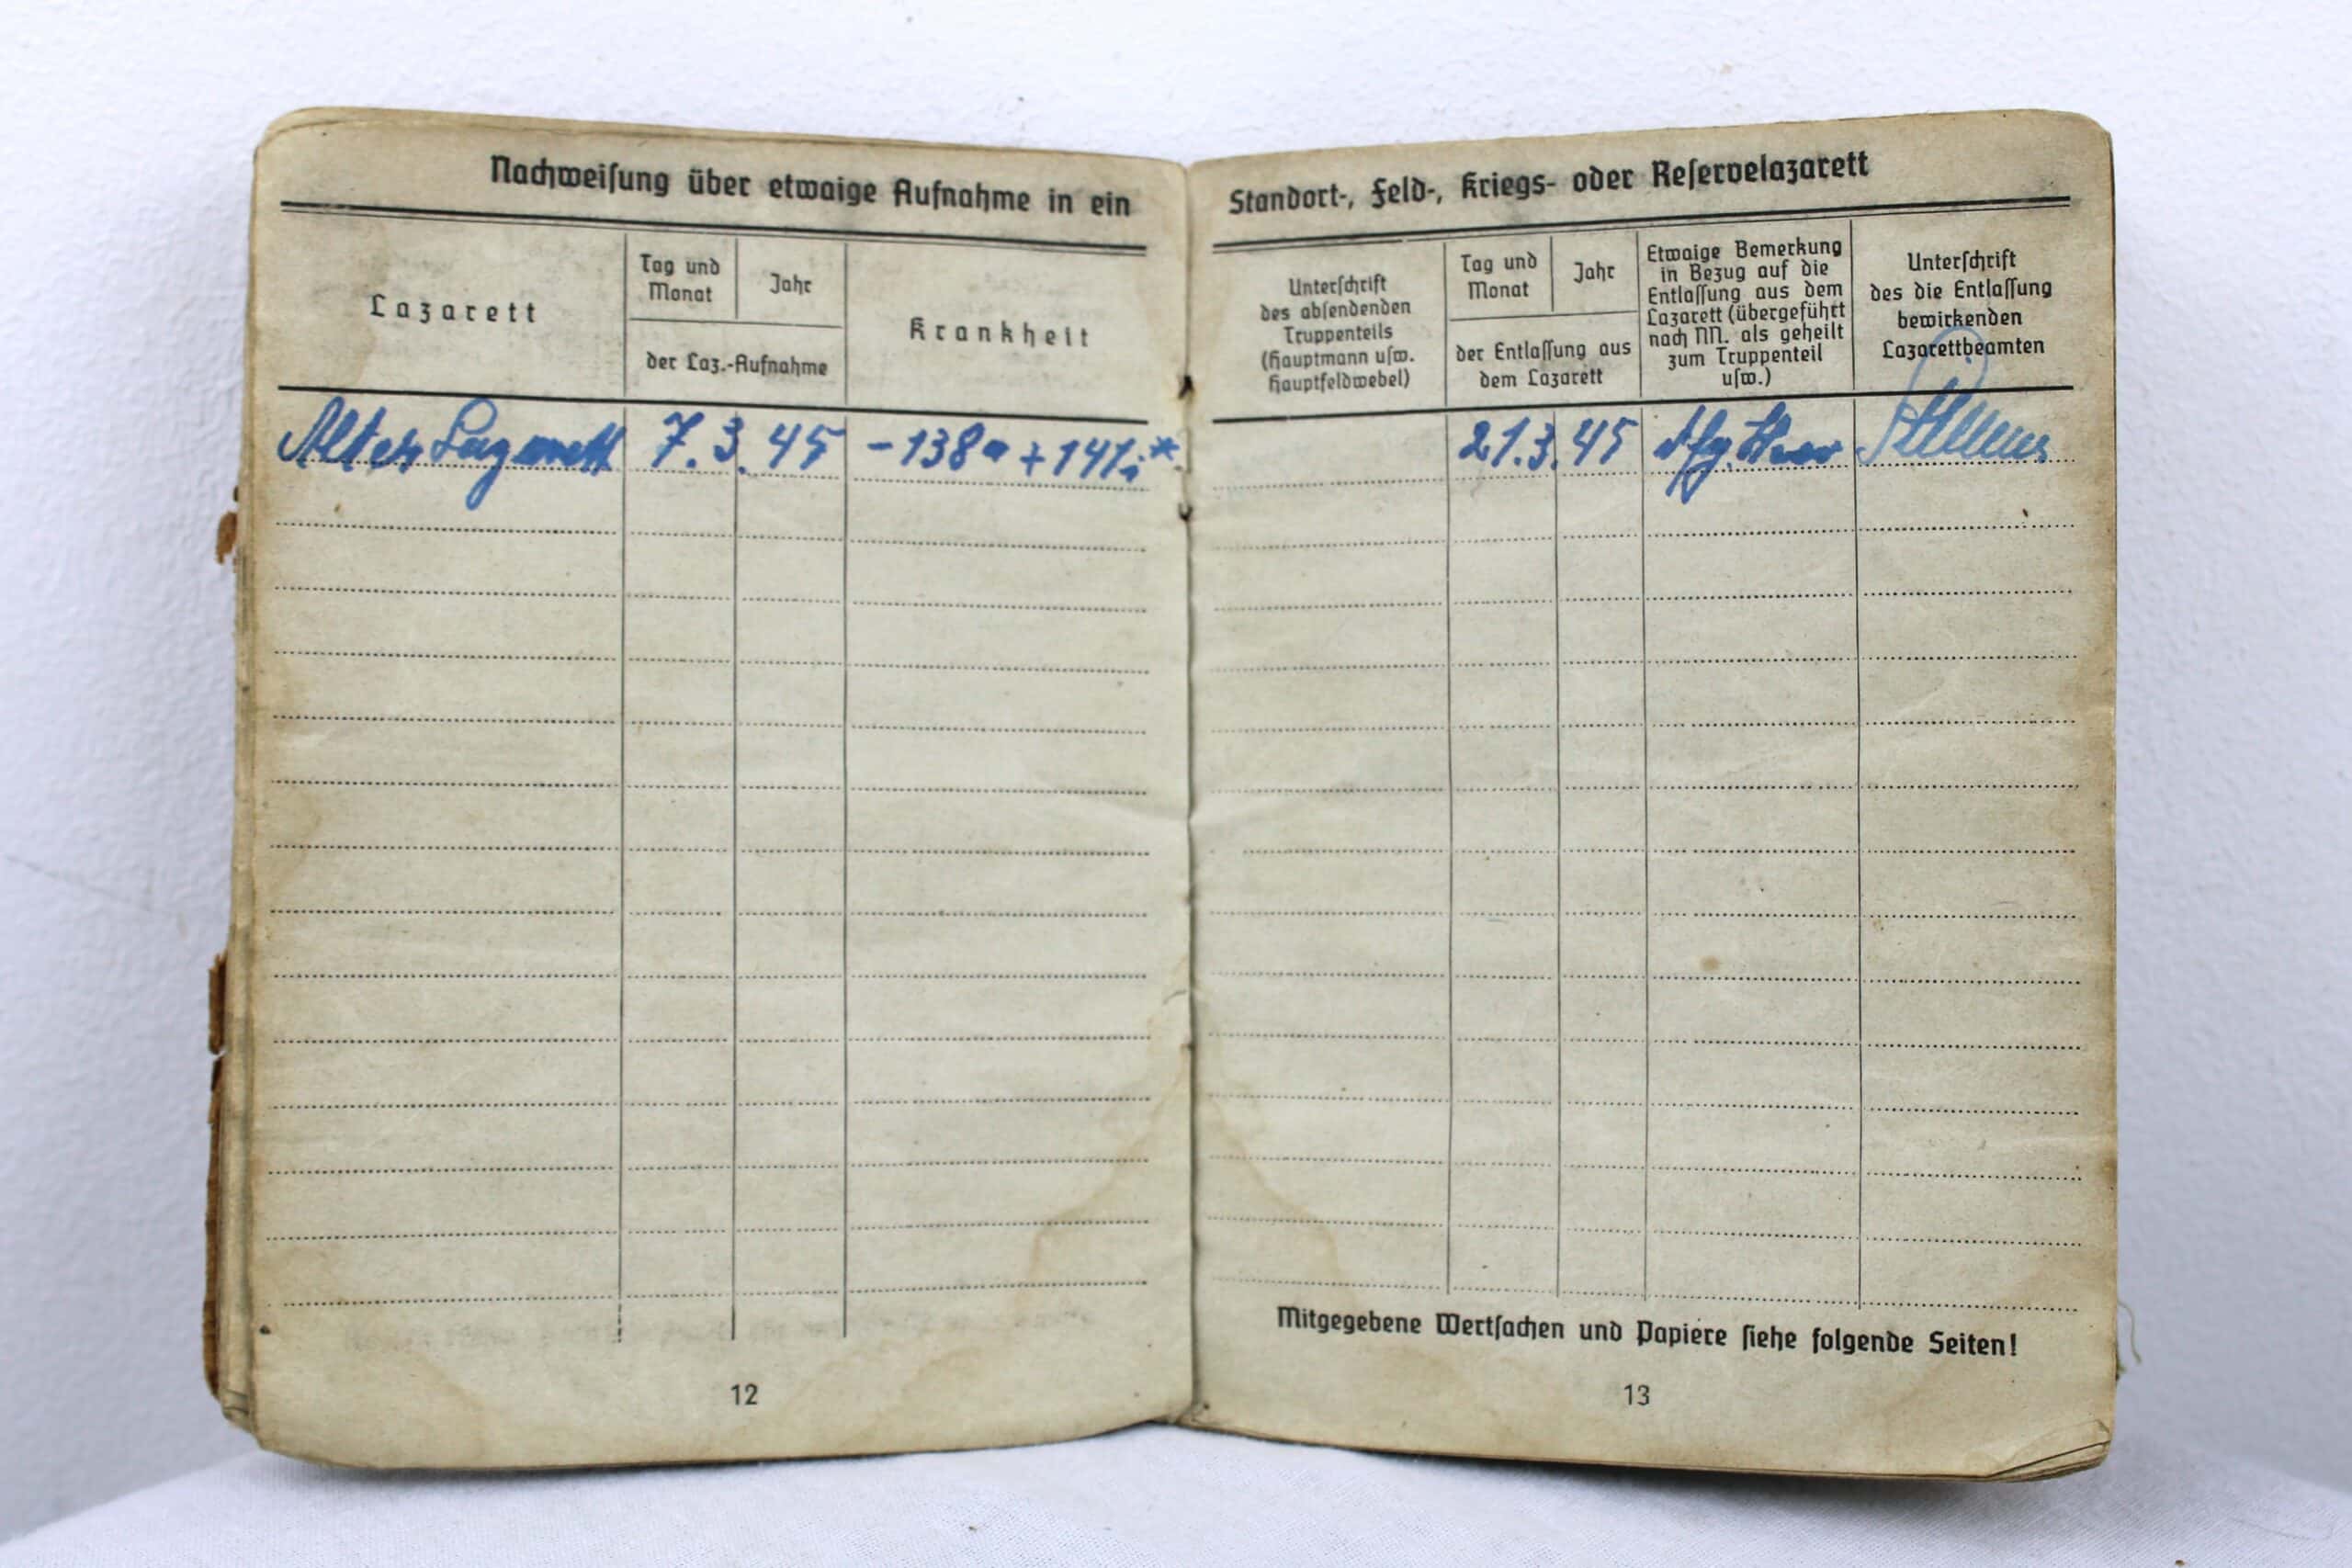 Nachweisung über etwaige Aufnahme in ein
Lazarett
Tag und
Monat
Jahr
der Laz.-Aufnahme
Krankheit
7.3.45 -138a +141i*
12
Standort-, Feld-, Kriegs- oder Reservelazarett
Unterschrift
des absendenden
Truppenteils
(Hauptmann usw.
Hauptfeldwebel)
Tag und
Monat
Jahr
der Entlassung aus
dem Lazarett
Etwaige Bemerkung
in Bezug auf die
Entlassung aus dem
Lazarett (übergeführt
nach NN. als geheilt
zum Truppenteil
usw.)
Unterschrift
des die Entlassung
bewirkenden
Lazarettbeamten
21.3.45
Mitgegebene Wertsachen und Papiere siehe folgende Seiten!
13